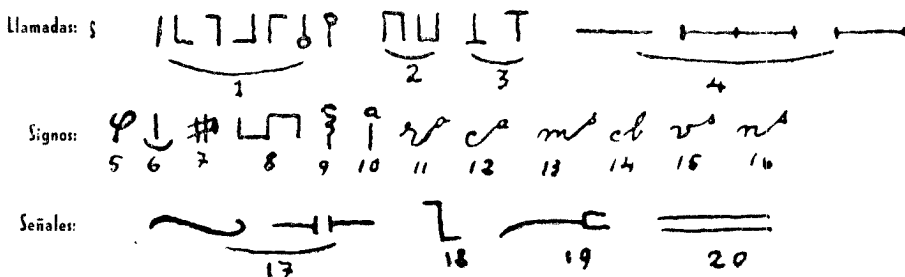 Llamadas:
1 2 3 4
Signos:
5 6 7 8 9 10 11 12 13 14 15 16
Señales:
17 18 19 20